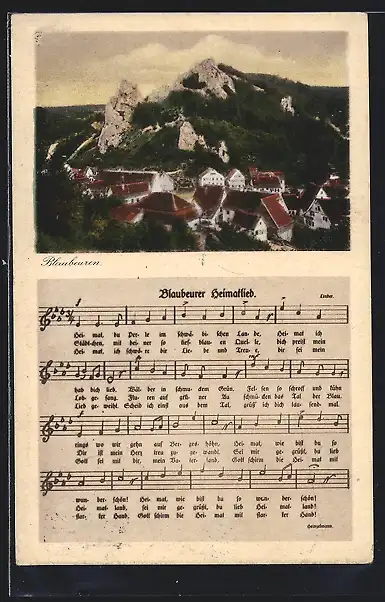 Blaubeuren
Blaubeurer Heimatlied.
Hei- mat, du Per- le im schwä- bi- schen Lan- de, Hei- mat ich
Städt- chen, mit dei- ner so tief- blau- en Quel- le, dich preist mein
Hei- mat, ich schwö- re dir Lie- be und Treu- e, dir sei mein
hab dich lieb. Wäl- der in schmu- ckem Grün, Fel- sen so schroff und kühn
Lob- ge- sang. Flu- ren auf grü- ner Au schmü- cken das Tal der Blau.
Lied ge- weiht. Scheid ich einst aus dem Tal, grüß ich dich tau- send- mal.
rings wo wir gehn auf Ber- ges- höhn, Hei- mat, wie bist du so
Dir ist mein Herz treu zu- ge- wandt. Sei mir ge- grüßt, du lieb
Gott sei mit dir, mein Va- ter- land. Gott schirm die Hei- mat mit
wun- der- schön! Hei- mat, wie bist du so wun- der- schön!
Hei- mat- land, sei mir ge- grüßt, du lieb Hei- mat- land!
star- ker Hand, Gott schirm die Hei- mat mit star- ker Hand!